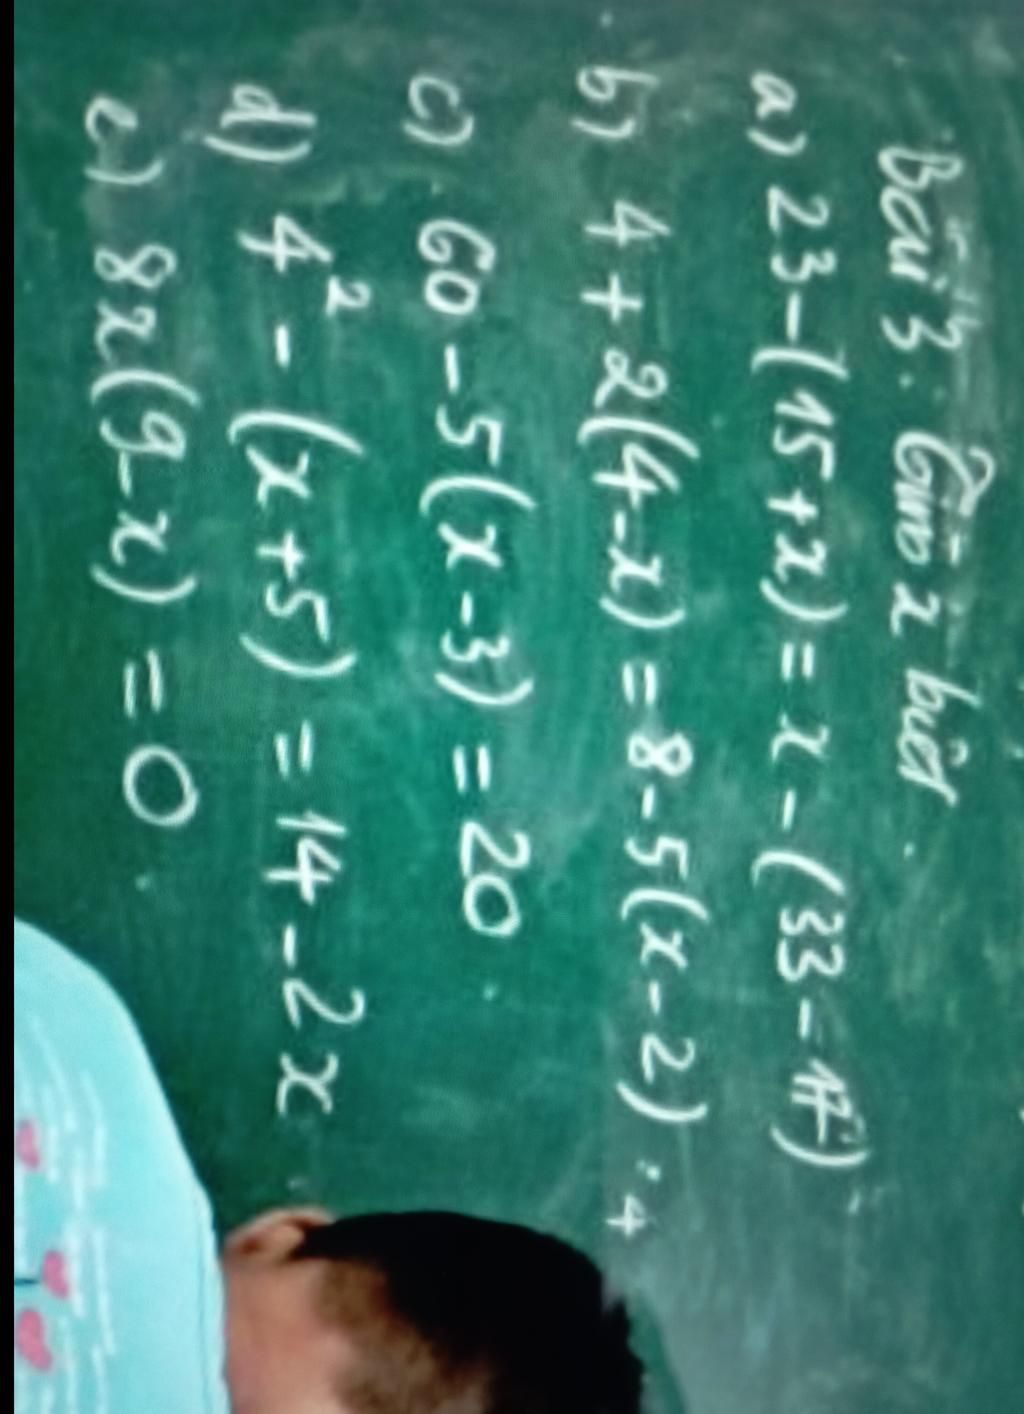 Bài 3. Tìm x biết
a) 23-(15+x)=x-(33-17)
b) 4+2(4-x)=8-5(x-2).4
c) 60-5(x-3)=20
d) 4²-(x+5)=14-2x
e) 8x(9-x)=0